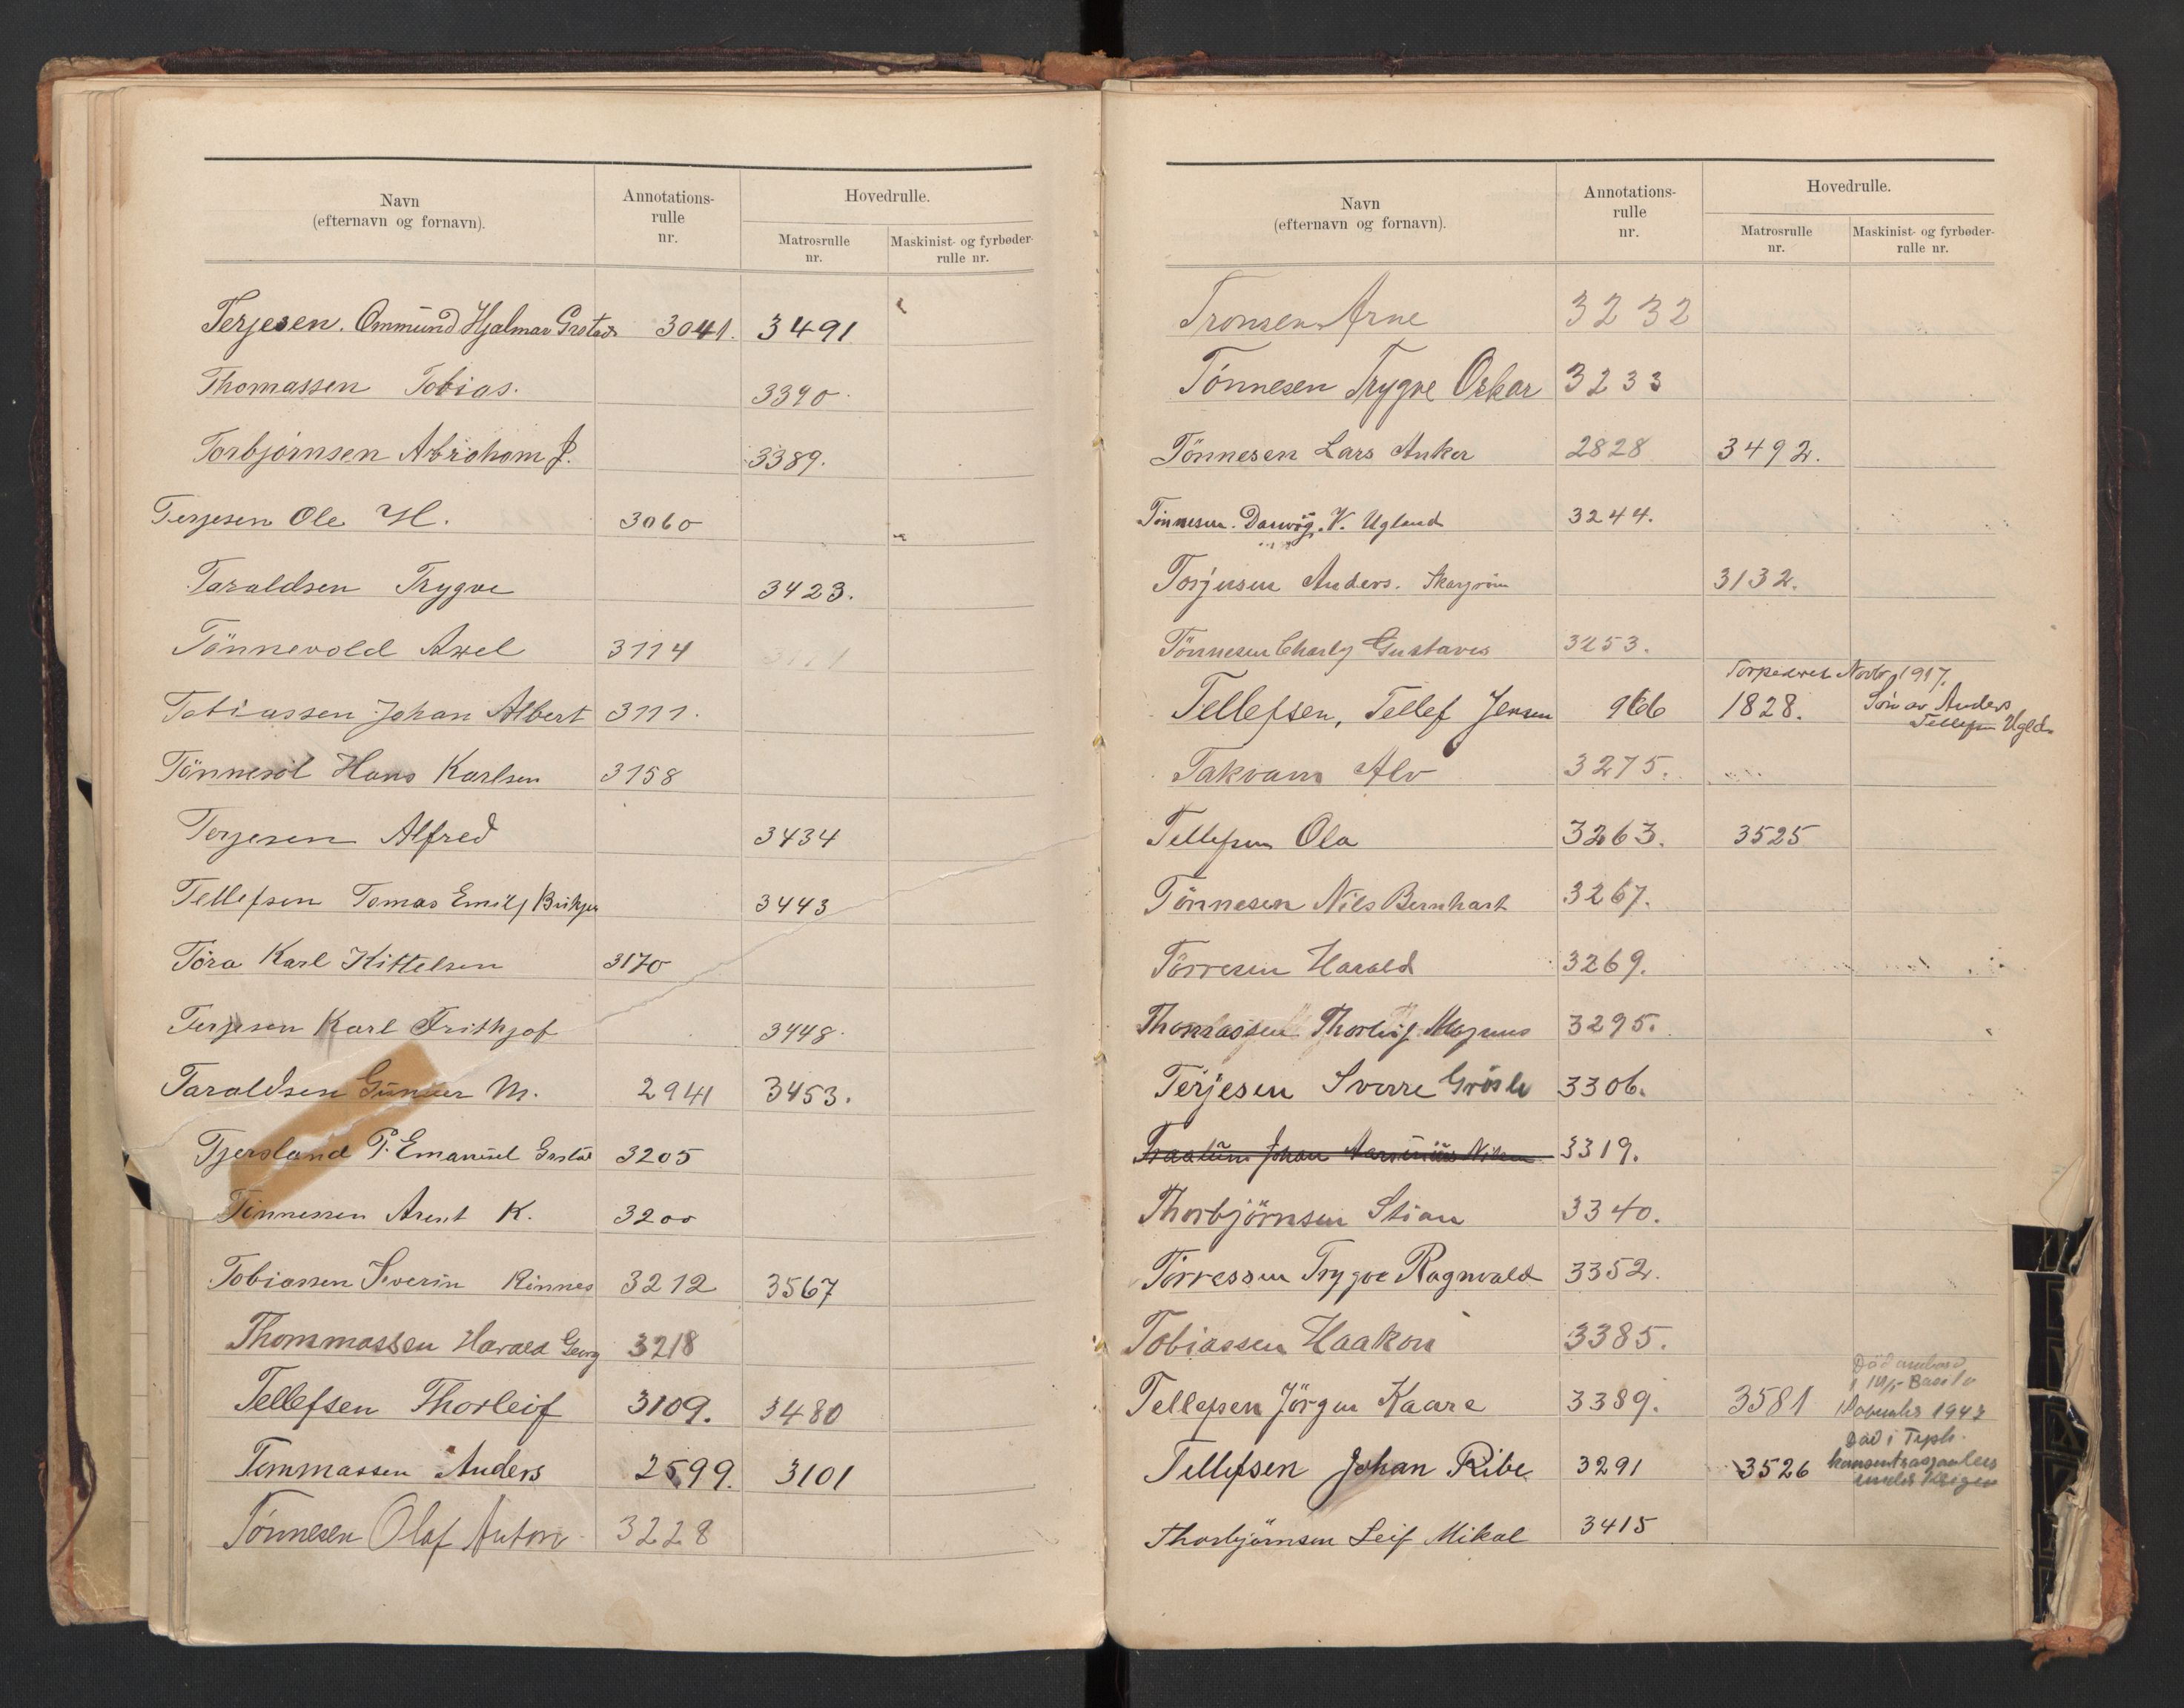 Navn
(efternavn og fornavn).
Annotations-
rulle
nr.
Hovedrulle.
Matrosrulle
nr.
Maskinist- og fyrbøder-
rulle nr.
Terjesen. Ommund Hjalmar Grstad 3041. 3491
Thomassen Tobias. 3390.
Torbjörnsen Abraham J. 3389.
Terjesen Ole H. 3060
Taraldsen Trygve 3423.
Tönnevold Axel 3114
Tobiassen Johan Albert 3111.
Tönnesöl Hans Karlsen 3158
Terjesen Alfred 3434
Tellefsen Tomas Emil 3443
Töra Karl Kittelsen 3170
Terjesen Karl Frithjof 3448.
Taraldsen Gunner M. 2941 3453.
Tjersland P. Emanuel Gustav 3205
Tinnessen Arent K. 3200
Tobiassen Severin Rinnes 3212 3567
Thommassen Harald Georg 3218
Tellefsen Thorleif 3109. 3480
Tommassen Anders 2599. 3101
Tönnesen Olaf Anton 3228
Navn
(efternavn og fornavn).
Annotations-
rulle
nr.
Hovedrulle.
Matrosrulle
nr.
Maskinist- og fyrbøder-
rulle nr.
Tronsen Arne 3232
Tönnesen Trygve Oskar 3233
Tönnesen Lars Anker 2828 3492.
Tönnesen. V. Ugland 3244.
Torjusen Anders. 3132.
Tönnesen Charly Gustaves 3253.
Torpedert Novbr 1917.
Tellefsen, Tellef Jensen 966 1828. Sön av Anders
Tellefsen Ugld.
Takvam Alv 3275.
Tellefsen Ola 3263. 3525
Tönnesen Nils Bernhart 3267.
Törresen Harald 3269.
Thomassen Thorleif Magnus 3295.
Terjesen Sverre Grösle 3306.
Johan 3319.
Thorbjörnsen Stian 3340.
Törressen Trygve Ragnvald 3352.
Tobiassen Haakon 3385.
Död ombord
i
Tellefsen Jörgen Kaare 3389. 3581 1943
Död i Tysk.
Tellefsen Johan Ribe 3291 3526 konsentrasjonsleir
under krigen
Thorbjörnsen Leif Mikal 3415